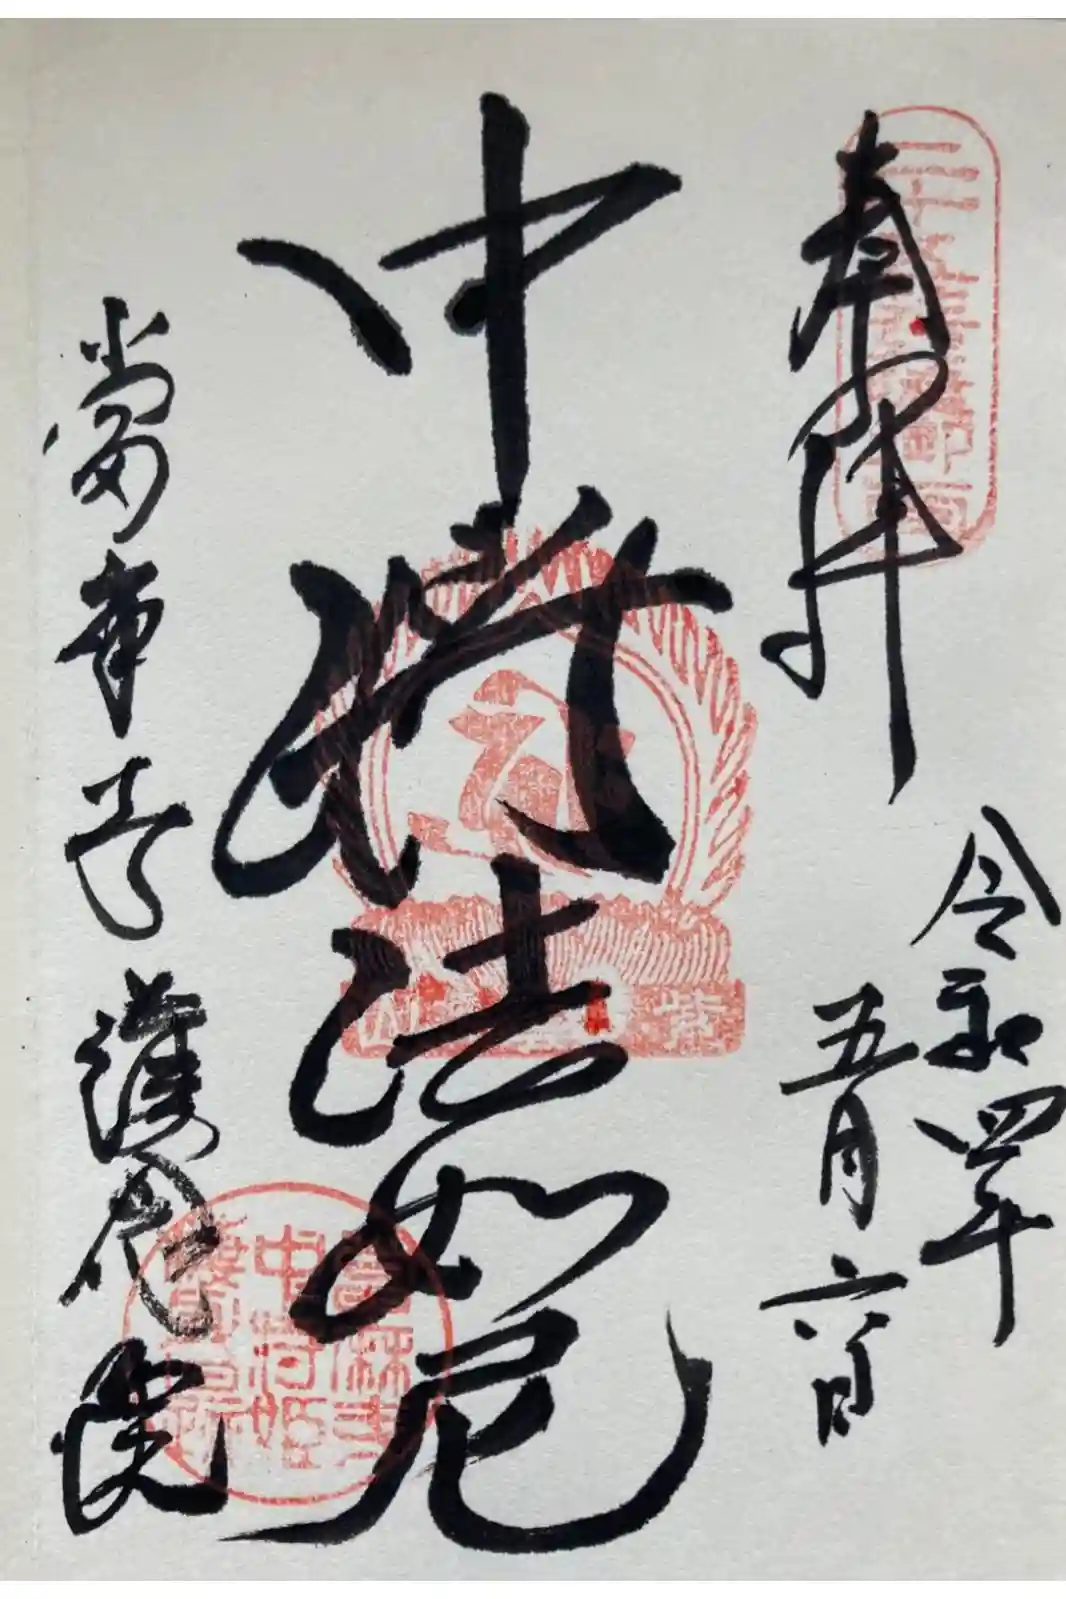 奉拝
令和四年
五月六日
中将法如尼
當麻寺護念院
當麻寺
中将姫